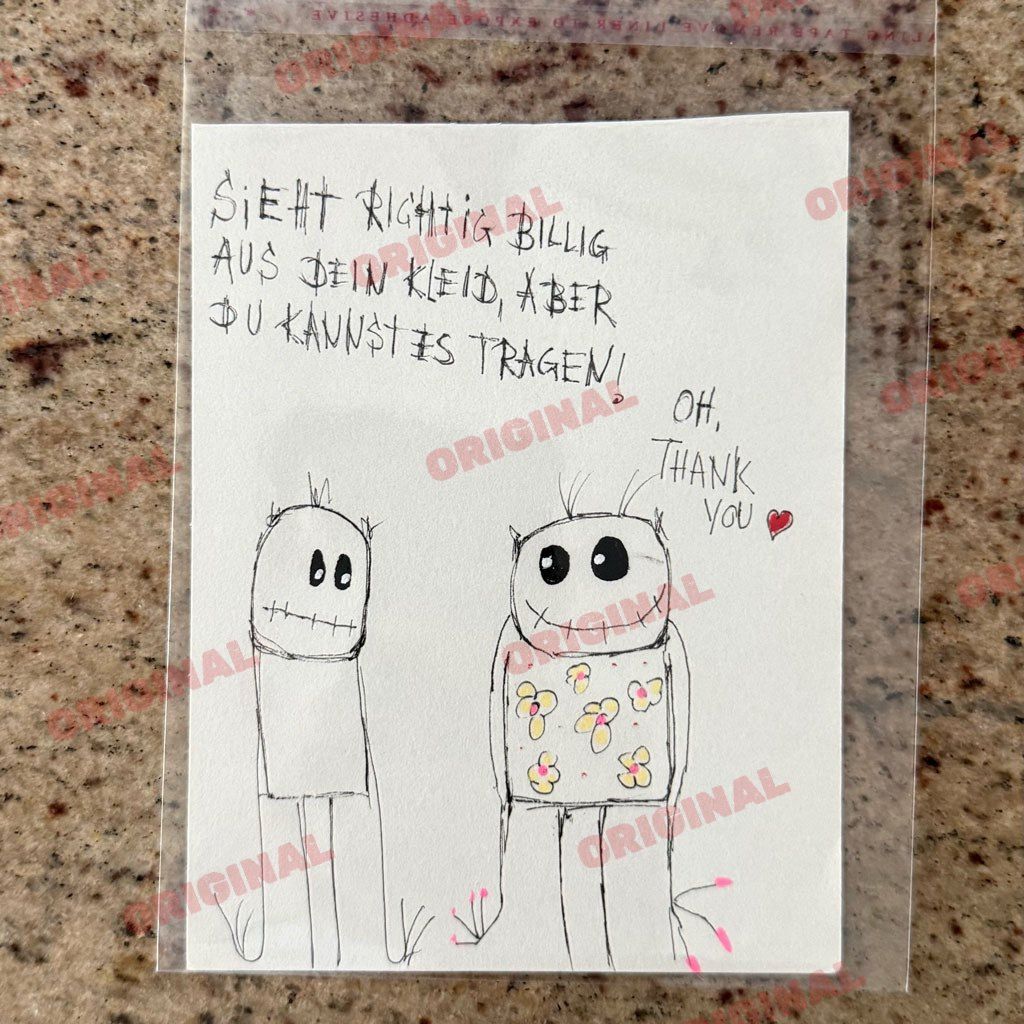 SEALING TAPE REMOVE LINER TO EXPOSE ADHESIVE
SiEHT RiCHtiG BILLIG
AUS DEIN KLEID, ABER
DU KANNST ES TRAGEN!
OH,
THANK
YOU ♥
ORIGINAL
ORIGINAL
ORIGINAL
ORIGINAL
ORIGINAL
ORIGINAL
ORIGINAL
ORIGINAL
ORIGINAL
ORIGINAL